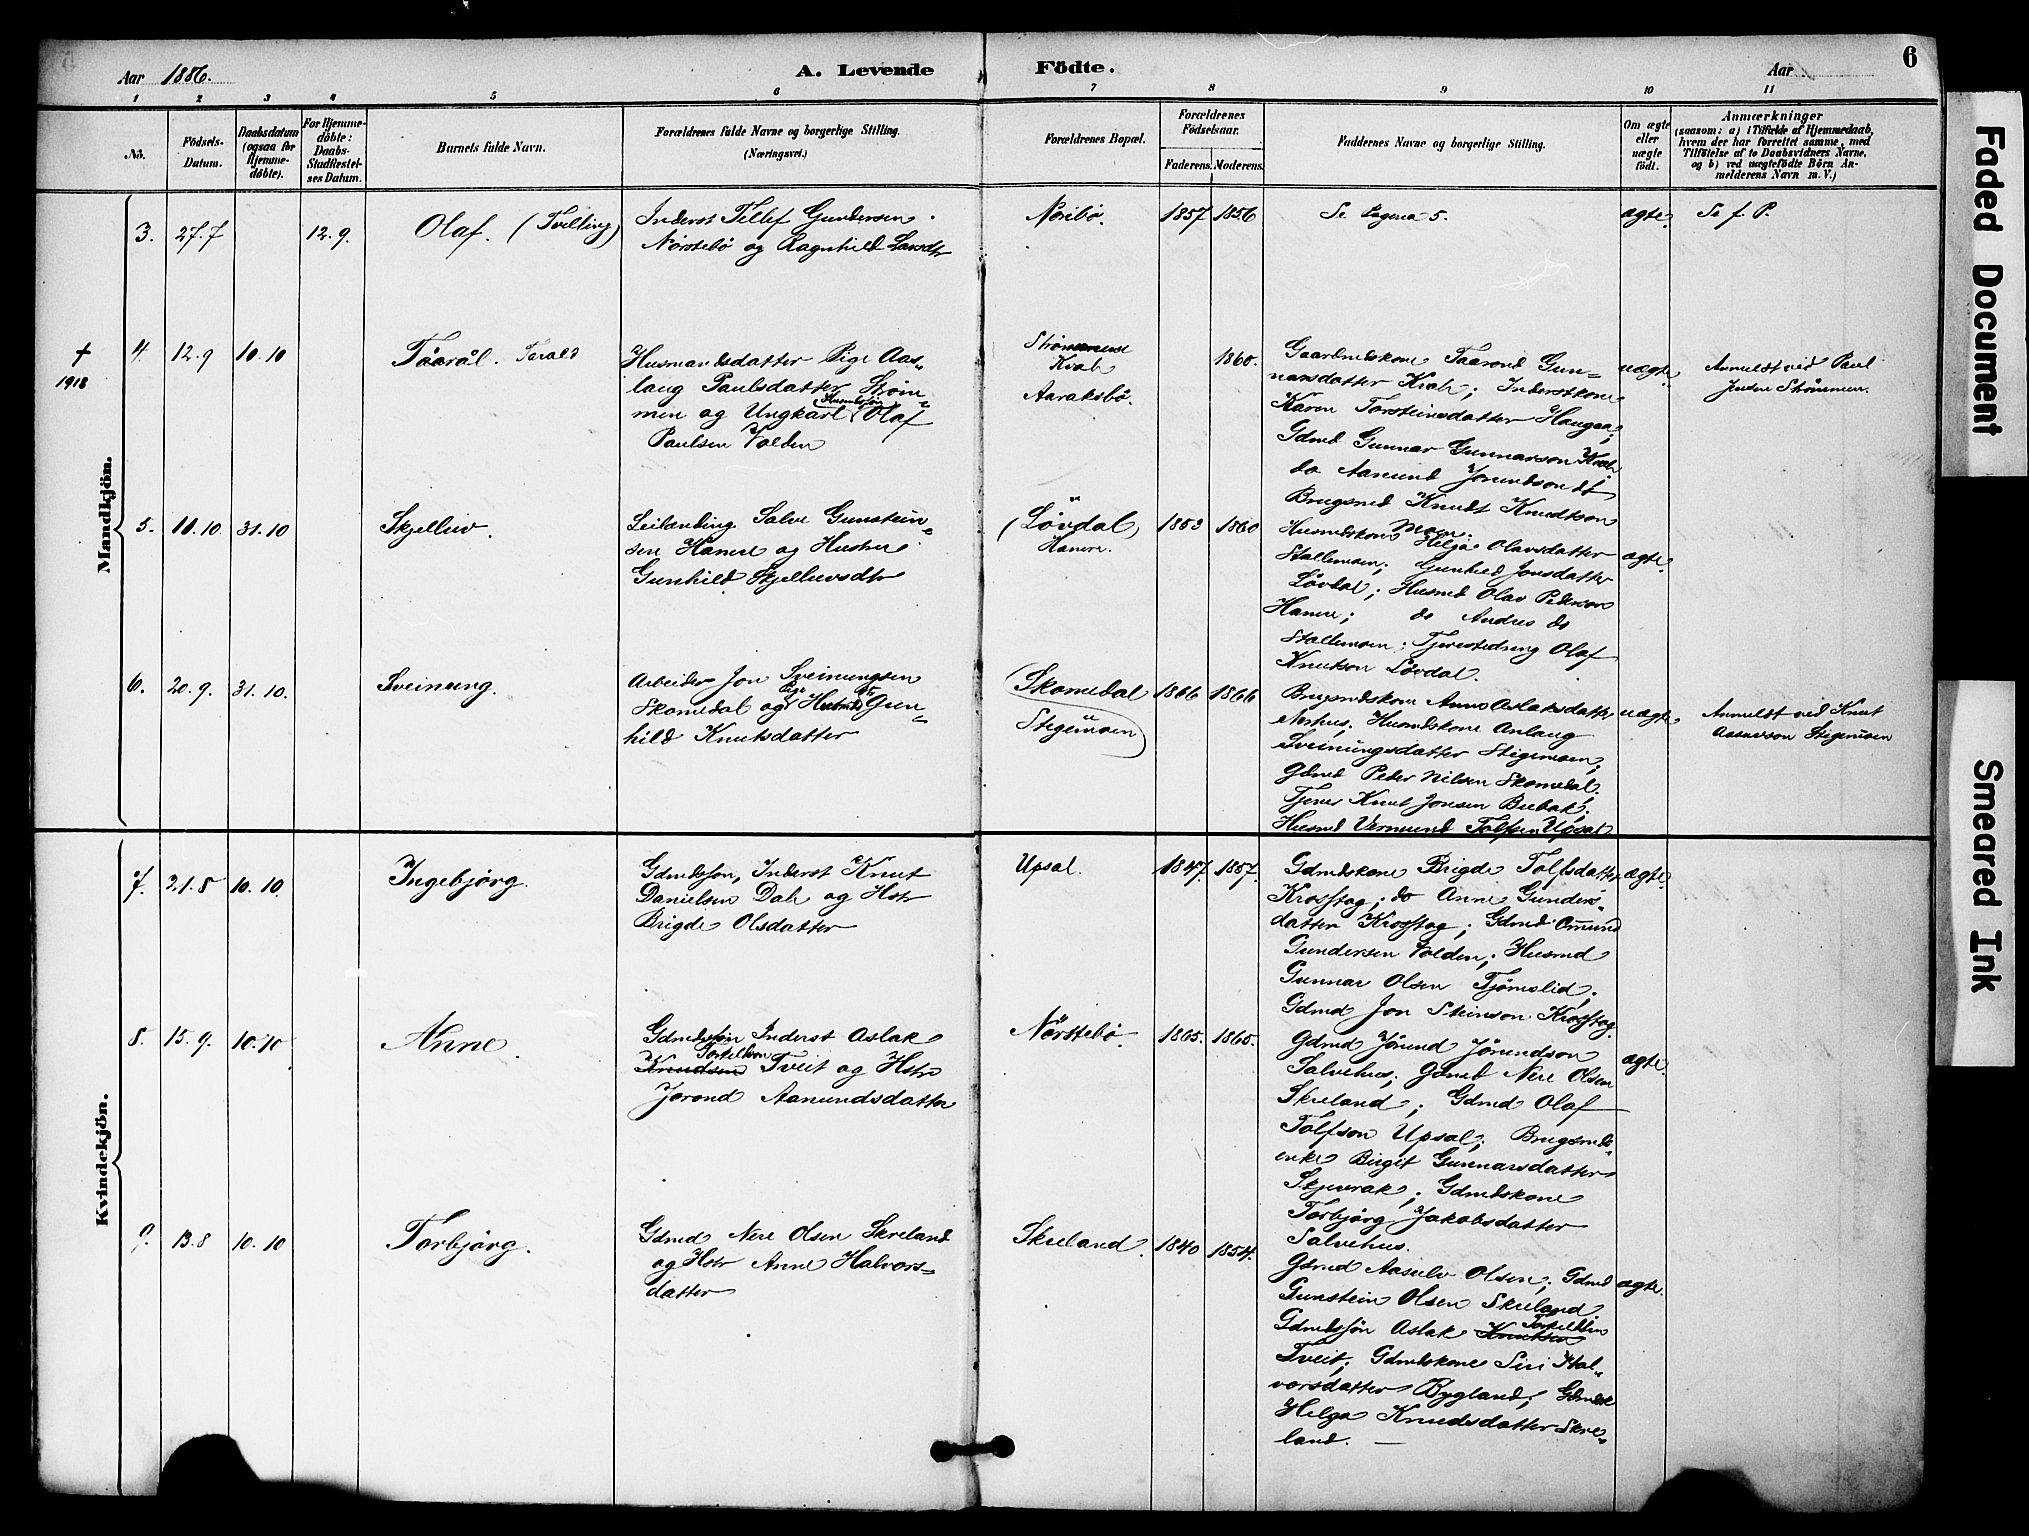 Aar 1886.
A. Levende Födte.
Aar
6
1 2 3 4 5 6 7 8 9 10 11
No.
Födsels-Datum.
Daabsdatum (ogsaa for Hjemme-döbte).
For Hjemme-döbte: Daabs-Stadfæstel-ses Datum.
Barnets fulde Navn.
Forældrenes fulde Navne og borgerlige Stilling.
(Næringsvei.)
Forældrenes Bopæl.
Forældrenes Födselsaar.
Faderens. Moderens.
Faddernes Navne og borgerlige Stilling.
Om ægte eller uægte födt.
Anmærkninger
(saasom: a) i Tilfælde af Hjemmedaab,
hvem der har forrettet samme, med
Tilföielse af to Daabsvidners Navne,
og b) ved uægtefödte Börn An-
melderens Navn m. V.)
Mandkjön.
3. 27.7 12.9. Olaf. (Tvilling)
Inderst Tellef Gundersen
Nörstebö og Ragnhild Larsdtr
Noribö. 1857 1856
Se Pagena 5.
ægte. Se f. P.
† 1918
4. 12.9 10.10 Tåarål. Tarald
Husmandsdatter Pige Aas-
laug Paulsdatter Strøm-
men og Ungkarl Husmdsøn Olaf
Paulsen Valden
Kvab
Aaraksbö.
1860.
Gaardmdskone Taarond Gun-
narsdatter Kvab; Inderstkone
Karen Torsteinsdatter Haugaa;
Gdmd Gunnar Gunnarson Kvab
do Aamund Jorundson do
Brugsmd Knudt Knudtson
uægte.
Anmeldt ved Paul
Jensen Strömmen.
5. 10.10 31.10 Skjelluv.
Leilænding Salve Gunstein-
sen Hanere og Hustru
Gunhild Skjelluvsdtr
(Lövdal)
Hanere.
1853 1860
Moen.
Husmdskone Helga Olavsdatter
Stallemoen; Gunhild Jonsdatter
Lövdal; Husmd Olav Pederson
Hanere; do Andres do
Stallemoen; Tjenestedreng Olaf
Knutson Lövdal.
ægte.
6. 20.9. 31.10. Sveinung.
Arbeider Jon Sveinungsen
Skomedal og Pige Husmdsdtr Gun-
hild Knutsdatter
(Skomedal
Stegemoen)
1866 1866
Brugsmdskone Anne Aslaksdatter
Neshus, Husmdskone Anlaug
Sveinungsdatter Stigemoen;
Gdmd Peder Nilsen Skomedal.
Tjener Knut Jonsen Bubak;
Husmd Vermund Tolfsen Upsal
uægte.
Anmeldt ved Knut
Aasuvson Stigemoen
Kvindekjön.
7. 21.8 10.10. Ingebjörg.
Gdmdssøn, Inderst Knut
Danielsen Dale og Hstr
Brigde Olsdatter
Upsal. 1847. 1857.
Gdmdskone Brigde Tolfsdatter
Krosstog; do Anne Gunders-
datter Krosstog; Gdmd Omund
Gundersen Valden; Husmd
Gunnar Olsen Tjömslid.
Gdmd Jon Steinson Krosstog
ægte.
8. 15.9. 10.10 Anne.
Gdmdssön Inderst Aslak
Torkelson
Knudsen Tveit og Hstr
Jorond Aamundsdatter
Nörstebö. 1865. 1865.
Gdmd Jörund Jörundson
Salvehus; Gdmd Nere Olsen
Skreland; Gdmd Olaf
Tolfson Upsal; Brugsmds-
enke Birgit Gunnarsdatter
Skjevrak; Gdmdskone
Torbjörg Jakobsdatter
Salvehus.
ægte.
9. 13.8 10.10 Torbjörg.
Gdmd Nere Olsen Skreland
og Hstr Anne Halvors-
datter
Skreland. 1840 1854.
Gdmd Aasulv Olsen; Gdmd
Gunstein Olsen Skreland
Gdmdssön Aslak Knutson Torkeldsen
Tveit; Gdmdskone Siri Hal-
vorsdatter Bygland; Gdmdsk
Helga Knudsdatter Skre-
land.
ægte.
Faded Document
Smeared Ink